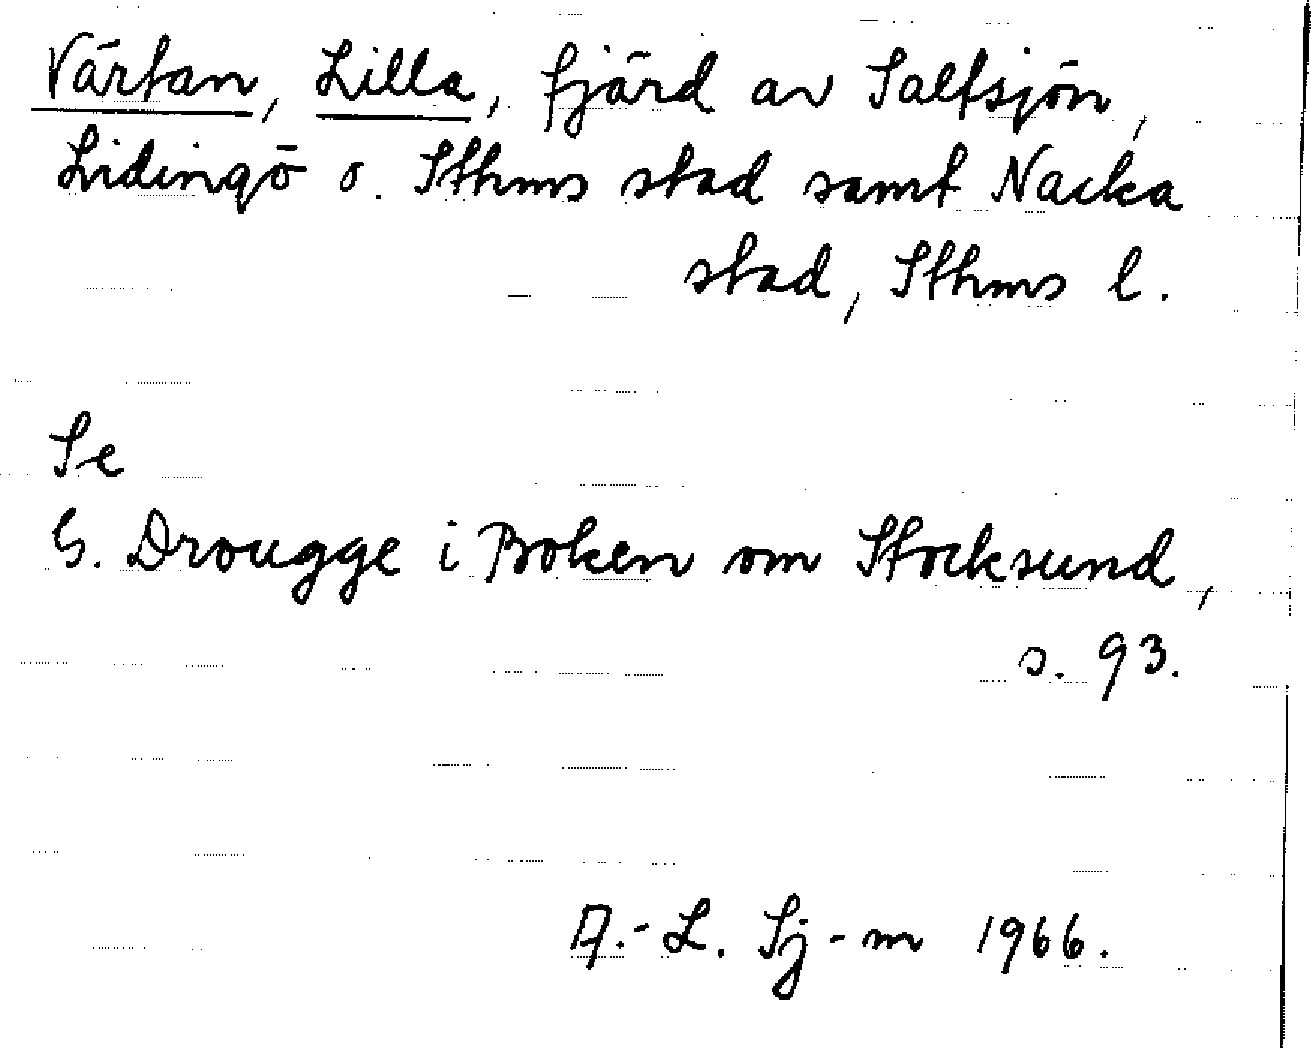 Värtan, Lilla, fjärd av Saltsjön,
Lidingö o. Sthms stad samt Nacka
stad, Sthms l.
Se
G. Drougge i Boken om Stocksund,
s. 93.
A.-L. Sj-m 1966.